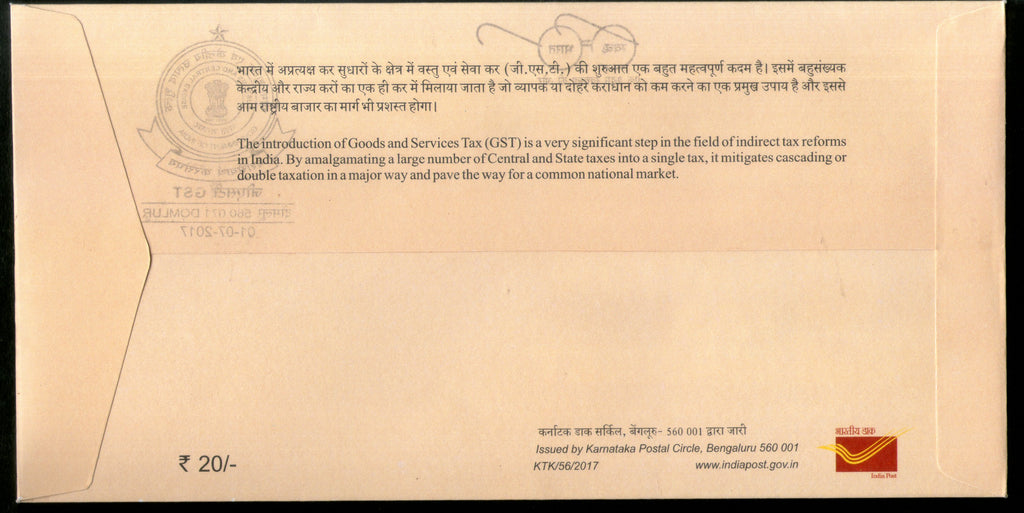 भारत में अप्रत्यक्ष कर सुधारों के क्षेत्र में वस्तु एवं सेवा कर (जी.एस.टी.) की शुरुआत एक बहुत महत्वपूर्ण कदम है। इसमें बहुसंख्यक
केन्द्रीय और राज्य करों का एक ही कर में मिलाया जाता है जो व्यापक या दोहरे कराधान को कम करने का एक प्रमुख उपाय है और इससे
आम राष्ट्रीय बाजार का मार्ग भी प्रशस्त होगा।
The introduction of Goods and Services Tax (GST) is a very significant step in the field of indirect tax reforms
in India. By amalgamating a large number of Central and State taxes into a single tax, it mitigates cascading or
double taxation in a major way and pave the way for a common national market.
जीएसटी GST
560 071 DOMLUR
01-07-2017
कर्नाटक डाक सर्किल, बेंगलूरु- 560 001 द्वारा जारी
Issued by Karnataka Postal Circle, Bengaluru 560 001
KTK/56/2017 www.indiapost.gov.in
₹ 20/-
भारतीय डाक
India Post